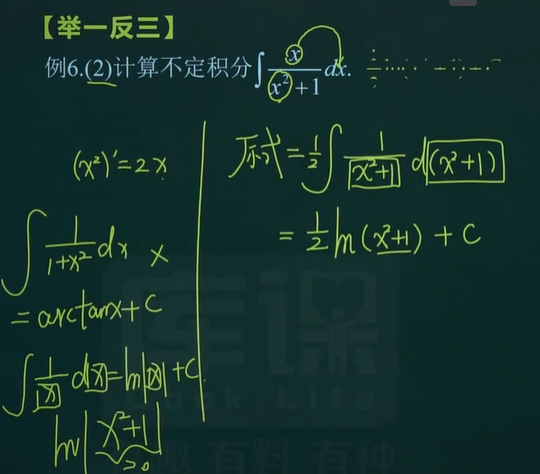 【举一反三】
例6.(2)计算不定积分∫ x/(x²+1) dx.
(x²)'=2x
∫ 1/(1+x²) dx ×
=arctanx+C
∫ 1/x dx=ln|x|+C
ln|x²+1|
>0
原式=1/2 ∫ 1/(x²+1) d(x²+1)
=1/2 ln(x²+1)+C
库课
Look Life
有料 有种